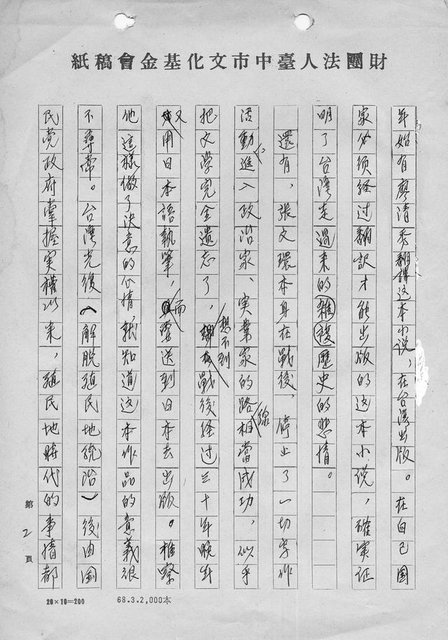 財團法人臺中市文化基金會稿紙
年始有廖清秀翻譯这本小說，在台湾出版。在自己國
家必须経过翻訳才能出版的这本小说，確实证
明了台湾走過来的複雜歷史的悲情。
還有，張文環本身在戰後，停止了一切寫作
活動，進入政治家、实業家的路線相當成功，似乎
把文学完全遺忘了，想不到戰後经过三十年晚年
又用日本語執筆，而送到日本去出版。推察
他这樣做了决意的心情，就知道这本作品的意義很
不尋常。台灣光復（解脫殖民地統治）後由國
民党政府掌握实權以来，殖民地時代的事情都
第2頁
20×10=200
68.3.2,000本